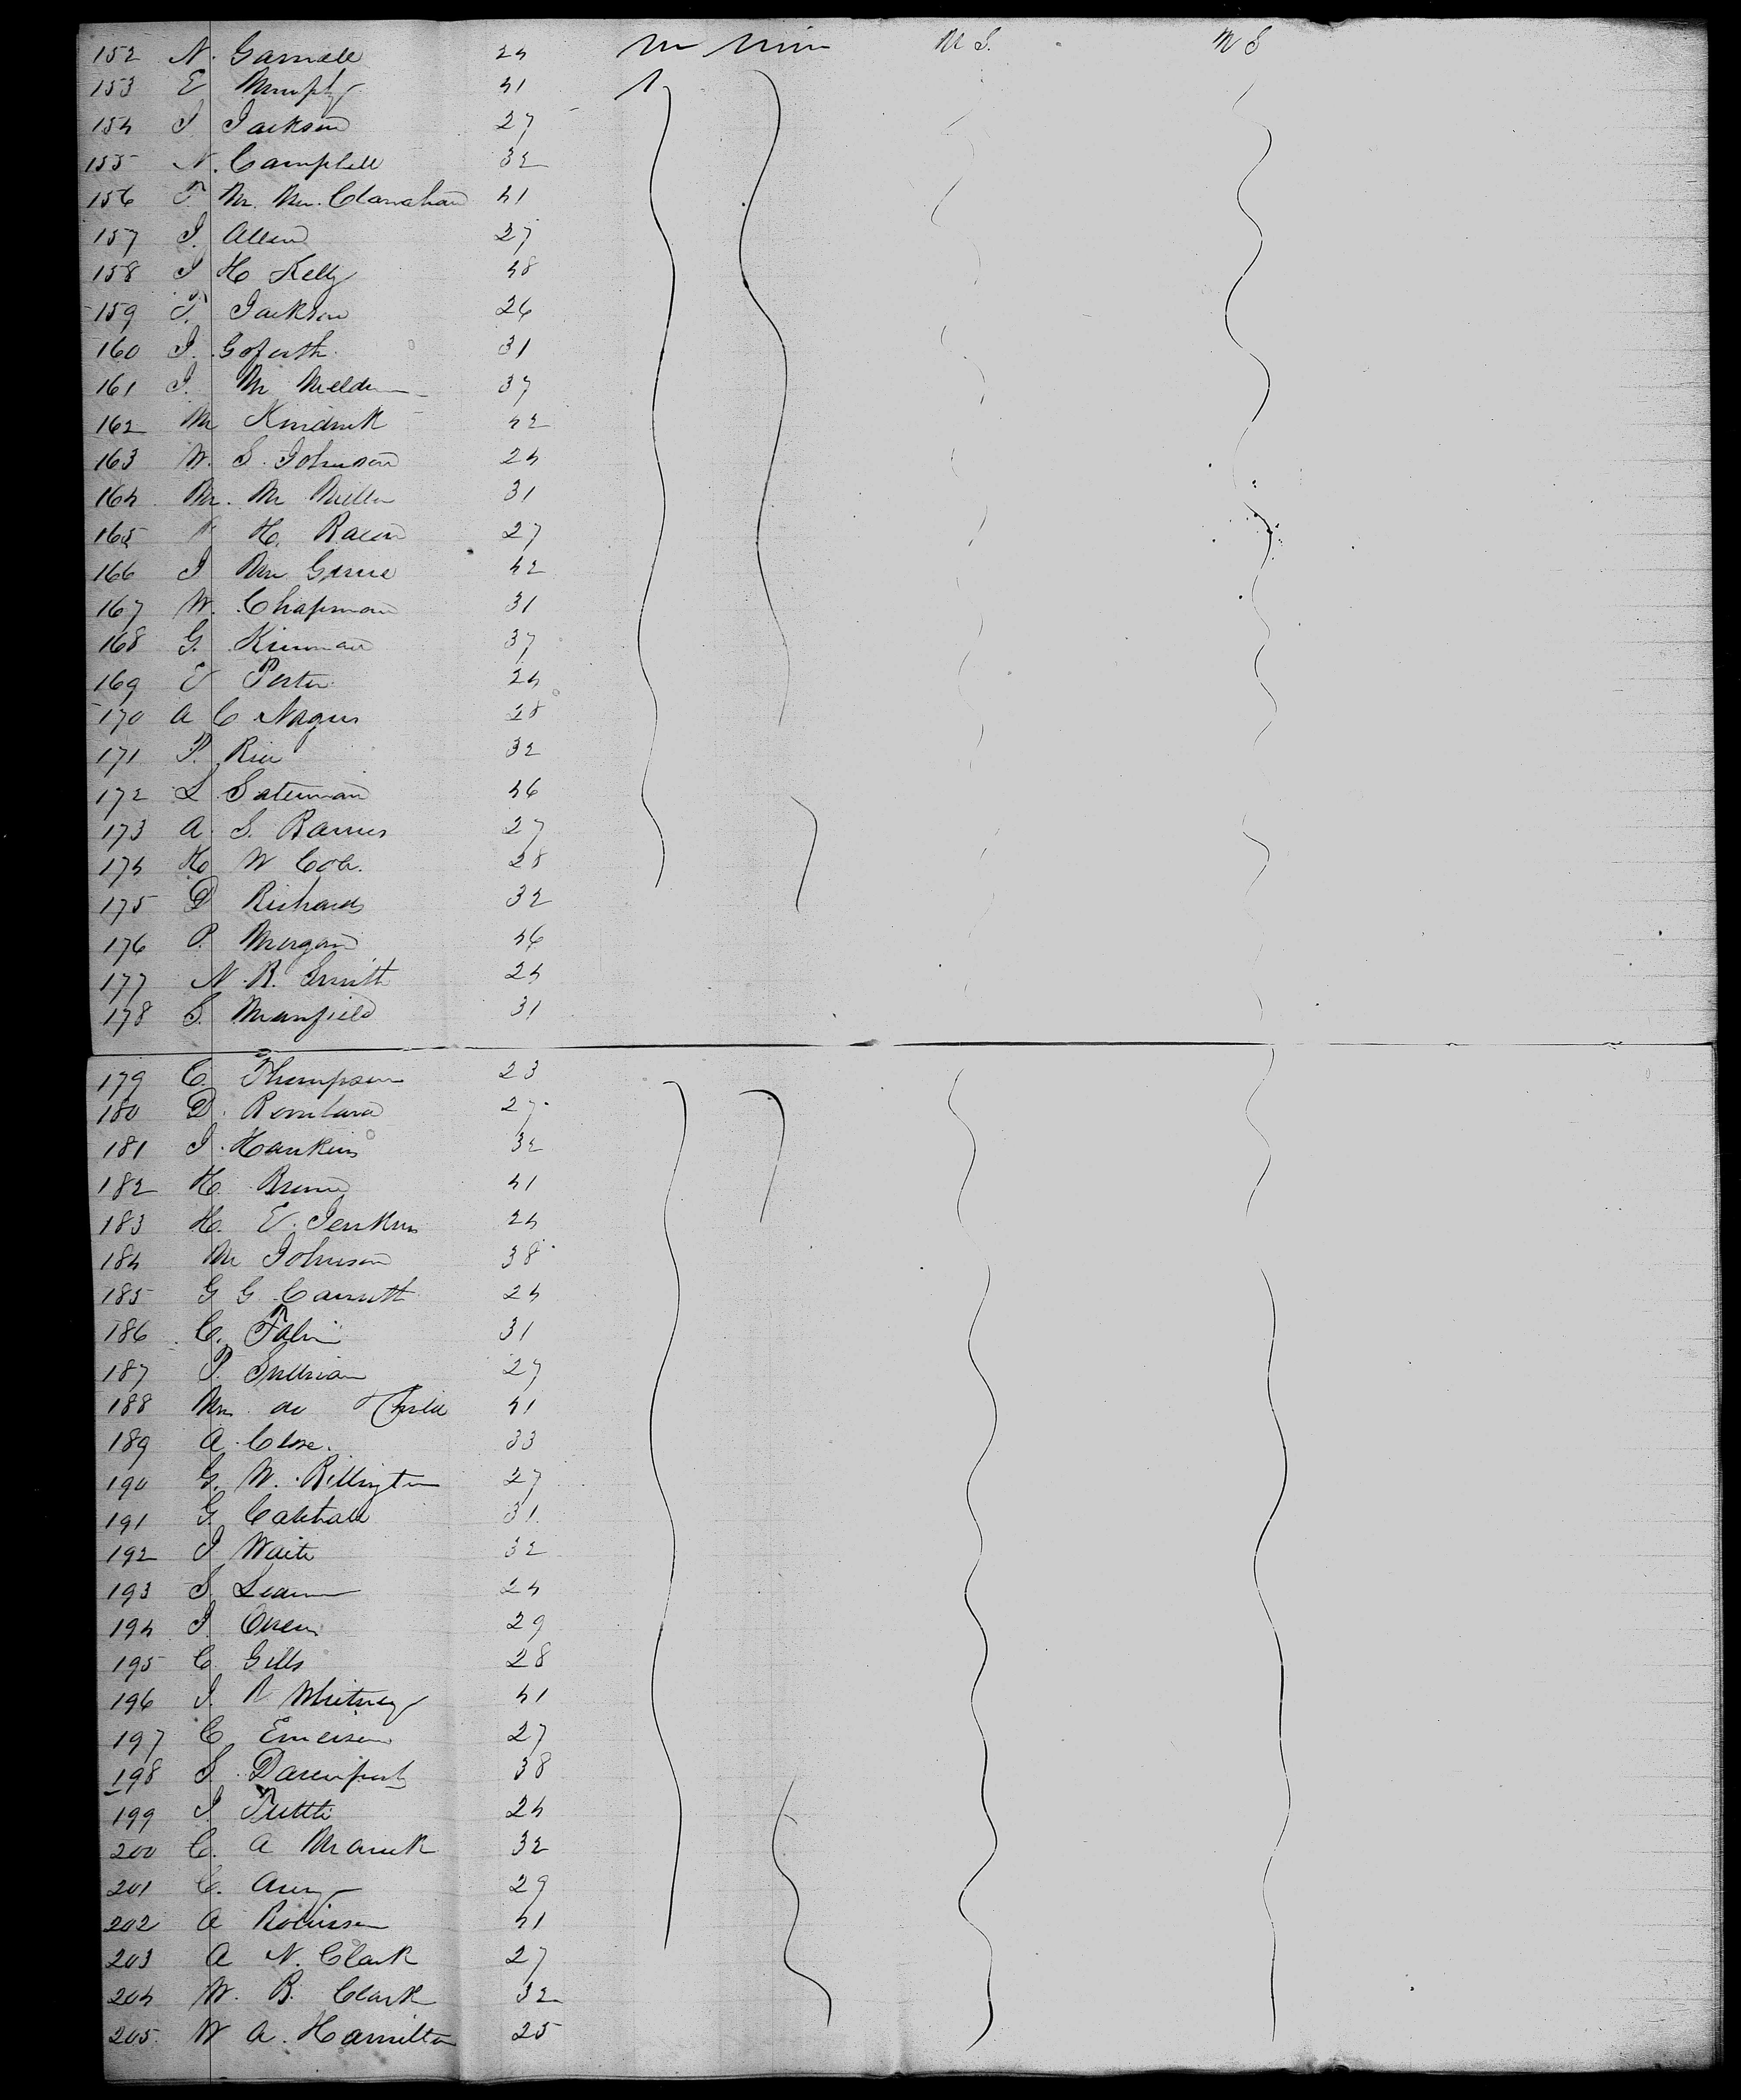 152 N. Garnall 24 M Min U S. U S
153 E Murphy 41
154 J Jackson 27
155 N. Campbell 32
156 T. M. Mc. Clanahan 41
157 J. Allen 27
158 J H Kelly 48
159 T. Jackson 26
160 J. Goforth 31
161 J. M 37
162 M Kindrick 42
163 W. S. Johnson 24
164 M. M Miller 31
165 H. Bacon 27
166 J Mc 42
167 W. Chapman 31
168 G. Kinman 37
169 E Porter 24
170 A C Nagus 28
171 P. Rice 32
172 L. Sateman 46
173 A. S. Barnes 27
174 H W Cole. 28
175 D Richards 32
176 P. Morgan 46
177 N. B. Smith 24
178 S. Manfield 31
179 C. Thompson 23
180 D. 27
181 J. Hankins 32
182 H. Brown 41
183 H. E. Jenkins 24
184 M Johnson 38
185 G G. Carruth 24
186 C. 31
187 P. Sullivan 27
188 Mrs do & Child 41
189 A. Close. 33
190 G. W. Billington 27
191 G. 31
192 J Waite 32
193 S. 24
194 J. Owen 29
195 C. Gills 28
196 J. Whitney 41
197 C. Emerson 27
198 S. Davenport 38
199 J. Tuttle 24
200 C. A 32
201 C. Avery 29
202 A Robinson 41
203 A N. Clark 27
204 W. B. Clark 32
205 W A. Hamilton 25